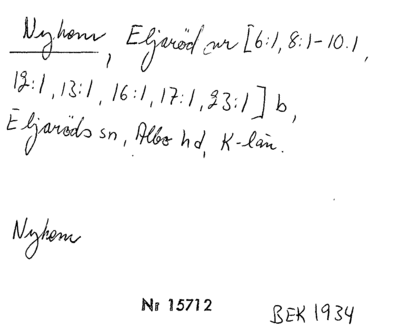 Nyhem, Eljaröd nr [6:1, 8:1-10:1,
12:1, 13:1, 16:1, 17:1, 23:1] b,
Eljaröds sn, Albo hd, K-län.
Nyhem
Nr 15712
BEK 1934